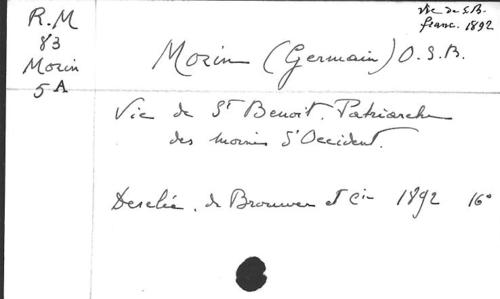 R.M
83
Morin
5A
Vie de S.B.
franc. 1892
Morin (Germain) O.S.B.
Vie de St Benoit. Patriarche
des moines d'Occident.
Desclée, de Brouwer et Cie 1892 16°